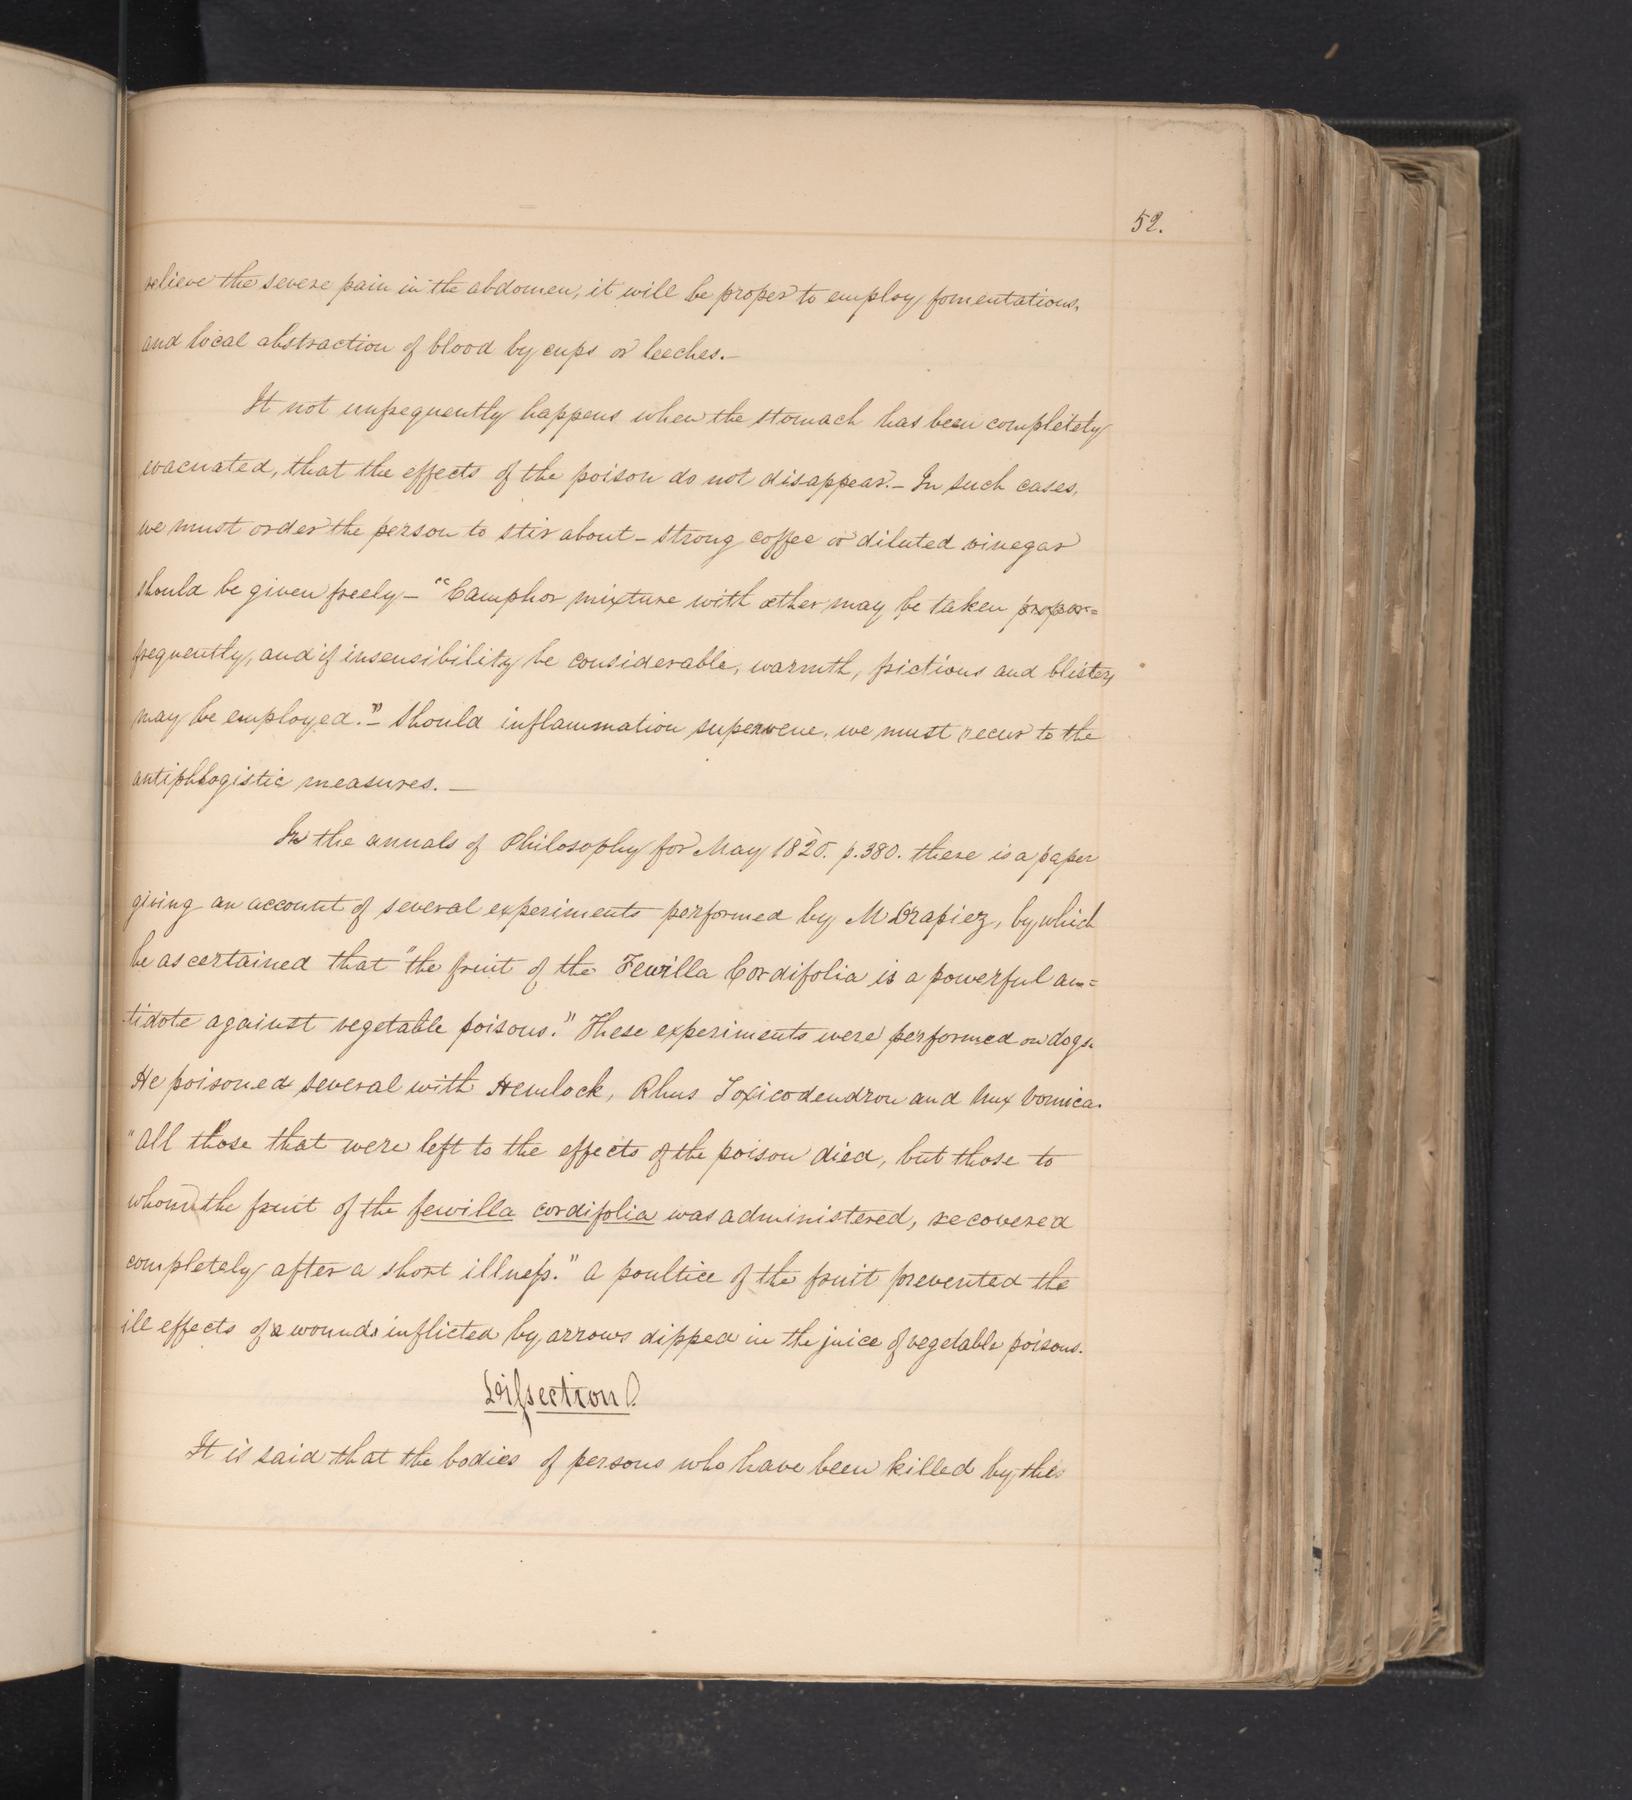 52.
relieve the severe pain in the abdomen, it will be proper to employ fomentations,
and local abstraction of blood by cups or leeches.—
It not unfrequently happens when the stomach has been completely
evacuated, that the effects of the poison do not disappear.— In such cases,
we must order the person to stir about — strong coffee or diluted vinegar
should be given freely — "Camphor mixture with æther may be taken propor=
frequently, and if insensibility be considerable, warmth, frictions and blisters
may be employed."— Should inflammation supervene, we must recur to the
antiphlogistic measures. —
In the annals of Philosophy for May 1820. p. 380. there is a paper
giving an account of several experiments performed by M Drapiez, by which
he ascertained that "the fruit of the Fewilla Cordifolia is a powerful an=
tidote against vegetable poisons." These experiments were performed on dogs.
He poisoned several with Hemlock, Rhus Toxicodendron and Nux Vomica.
"All those that were left to the effects of the poison died, but those to
whom the fruit of the fewilla cordifolia was administered, recovered
completely after a short illness." A poultice of the fruit prevented the
ill effects of a wounds inflicted by arrows dipped in the juice of vegetable poisons.
Dissection.
It is said that the bodies of persons who have been killed by the